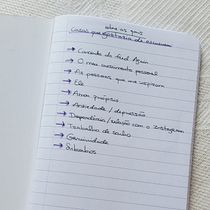 sobre as quais
Coisas que gostaria de escrever
→ Caminho do Feed Again
→ O meu crescimento pessoal
→ As pessoas que me inspiram
→ Ele
→ Amor próprio
→ Ansiedade / depressão
→ Dependência / relação com o Instagram
→ Trabalho de sonho
→ Generosidade
→ Sonhos